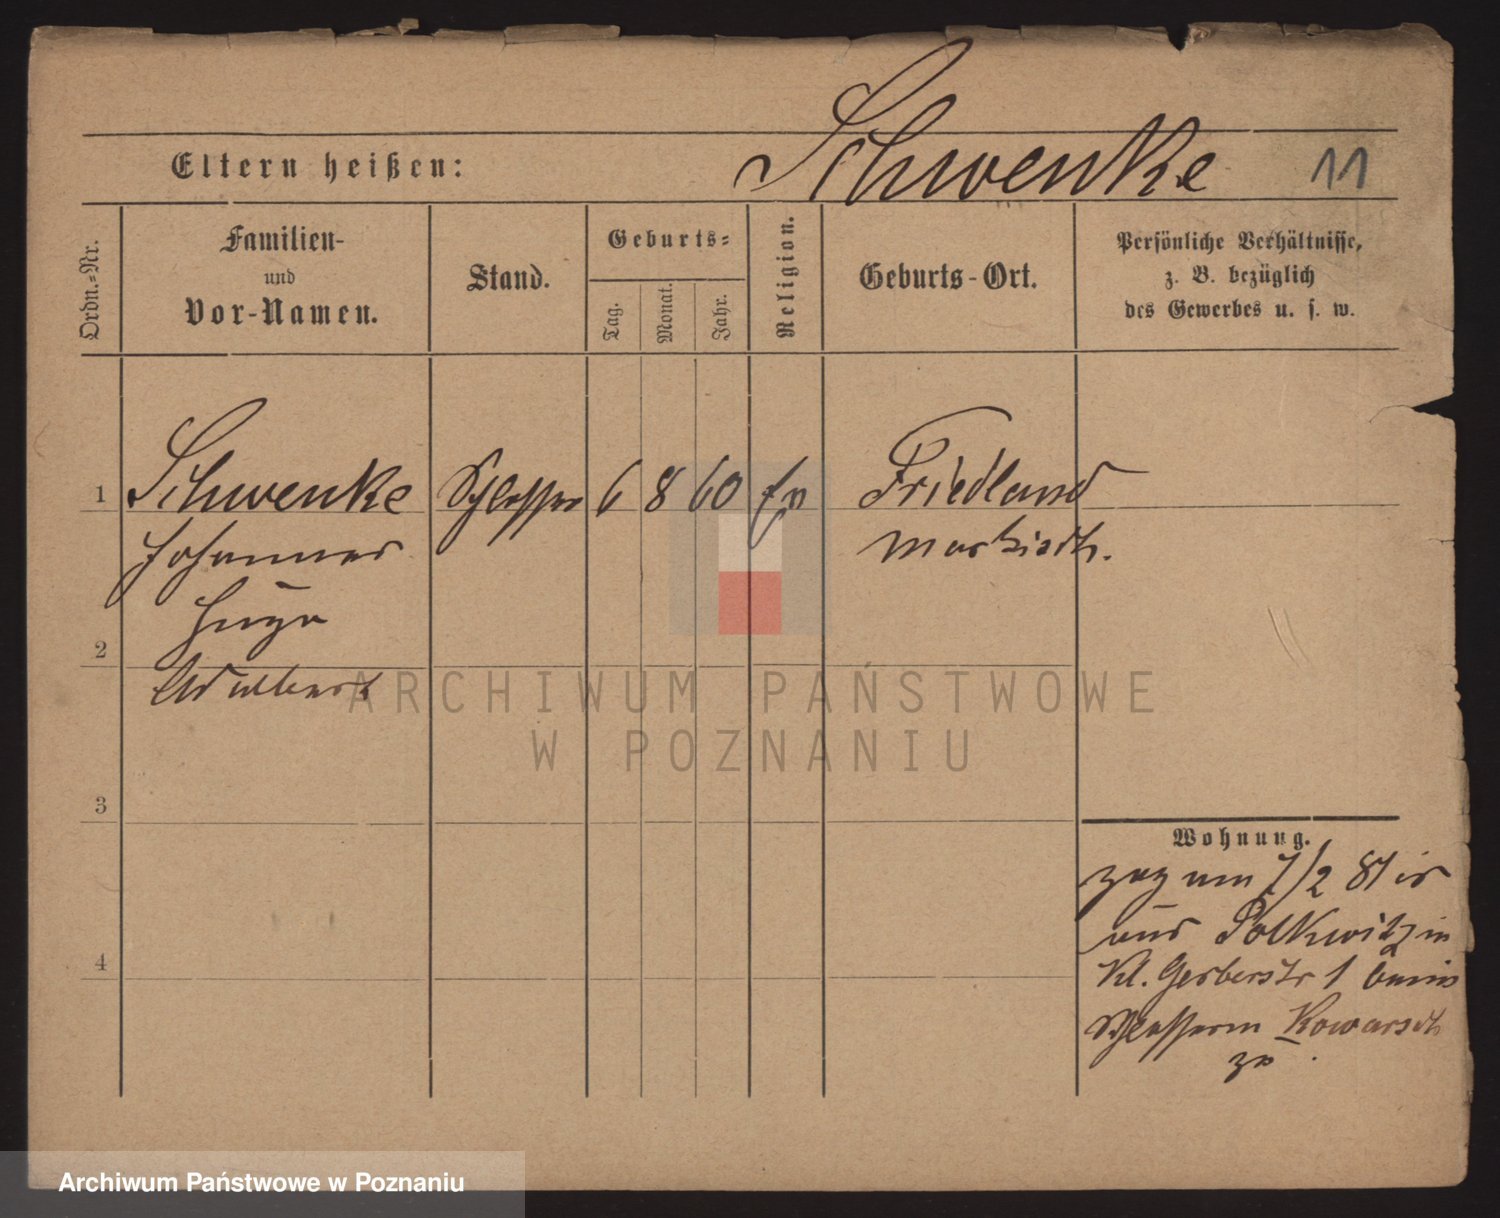 Schwenke 11
Eltern heißen:
Ordn.-Nr.
Familien-
und
Vor-Namen.
Stand.
Geburts-
Tag.
Monat.
Jahr.
Religion.
Geburts-Ort.
Persönliche Verhältnisse,
z. B. bezüglich
des Gewerbes u. s. w.
1 Schwenke Schlosser 6 8 60 Friedland
Johannes märkisch.
Hugo
2
Adalbert
ARCHIWUM PAŃSTWOWE
W POZNANIU
3
4
Wohnung.
zog am 7/2 81
aus Polkwitz in
Kl. Gerberstr 1 beim
Kowarsch
Archiwum Państwowe w Poznaniu